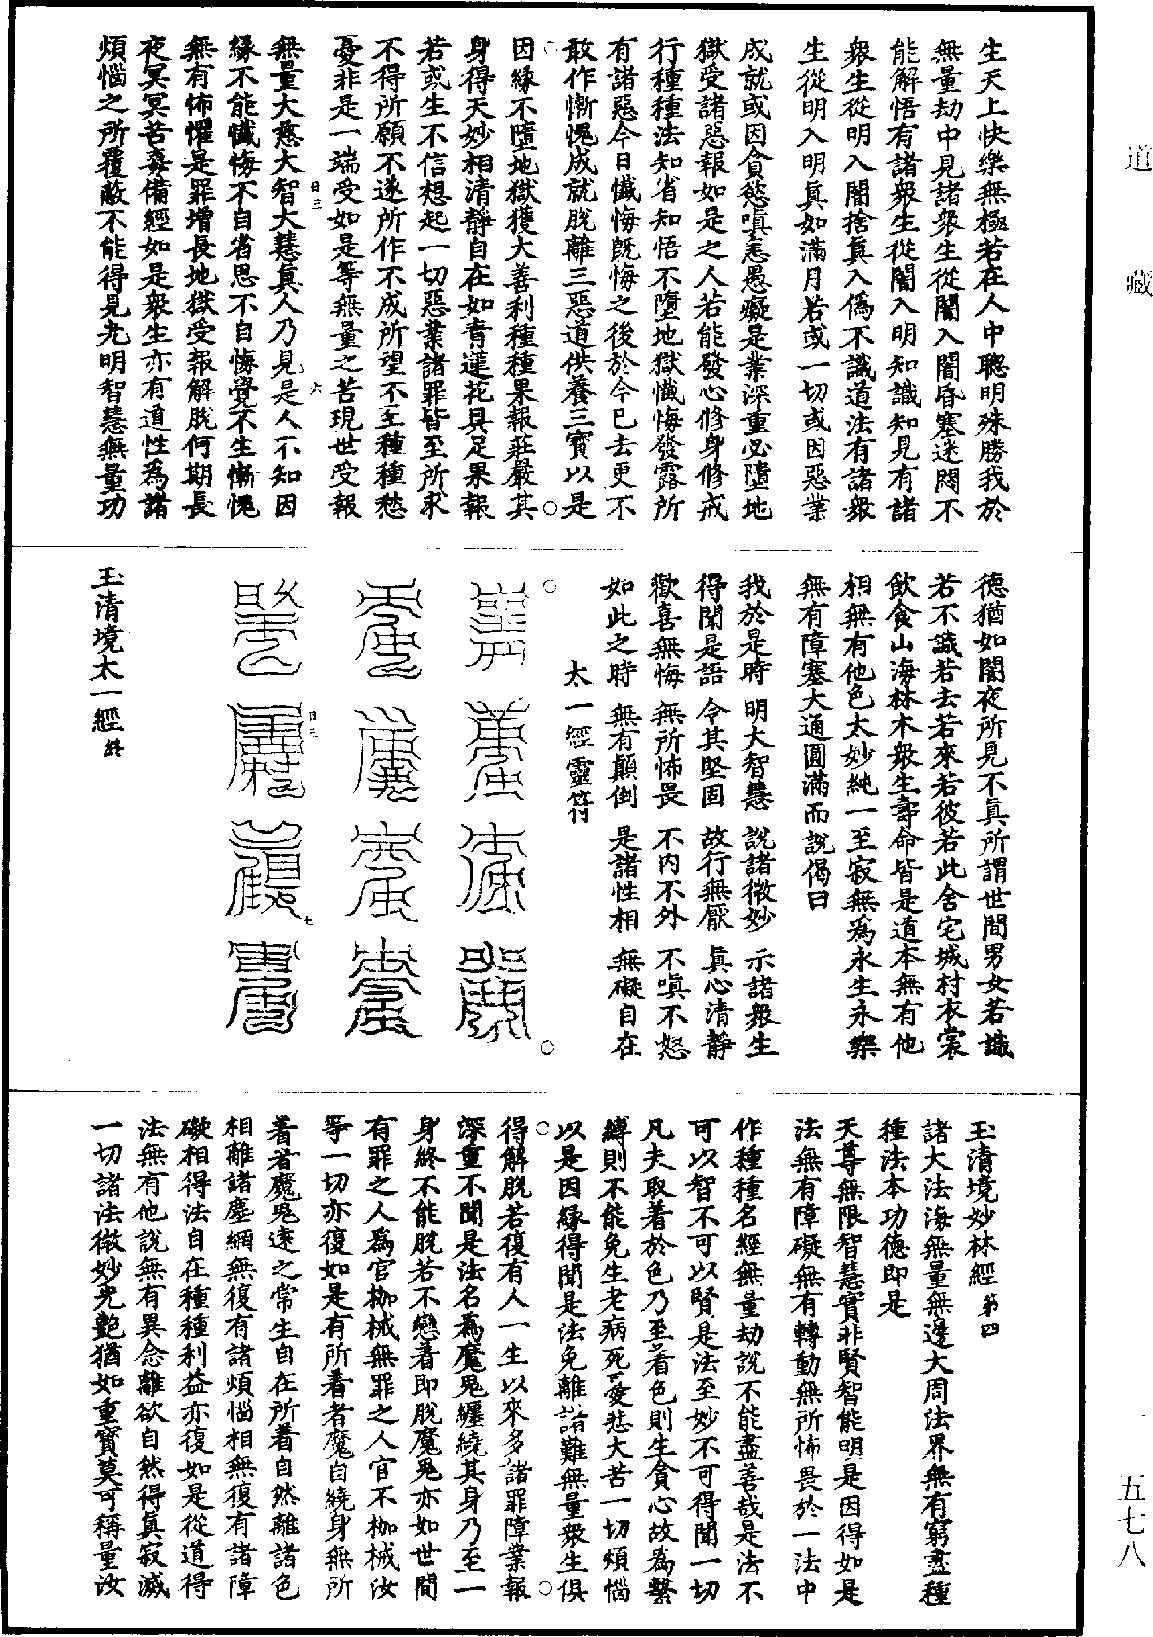 道藏
生天上快樂無極若在人中聰明殊勝我於
無量劫中見諸衆生從闇入闇昏塞迷悶不
能解悟有諸衆生從闇入明知識知見有諸
衆生從明入闇捨眞入僞不識道法有諸衆
生從明入明眞如滿月若或一切或因惡業
成就或因貪慾嗔恚愚癡是業深重必墮地
獄受諸惡報如是之人若能發心修身修戒
行種種法知省知悟不墮地獄懺悔發露所
有諸惡今日懺悔旣悔之後於今已去更不
敢作慚愧成就脫離三惡道供養三寶以是
因緣不墮地獄獲大善利種種果報莊嚴其
身得天妙相清靜自在如青蓮花具足果報
若或生不信想起一切惡業諸罪皆至所求
不得所願不遂所作不成所望不至種種愁
憂非是一端受如是等無量之苦現世受報
日三 六
無量大慈大智大慧眞人乃見是人不知因
緣不能懺悔不自省思不自悔覺不生慚愧
無有怖懼是罪增長地獄受報解脫何期長
夜冥冥苦毒備經如是衆生亦有道性爲諸
煩惱之所覆蔽不能得見光明智慧無量功
德猶如闇夜所見不眞所謂世間男女若識
若不識若去若來若彼若此舍宅城村衣裳
飲食山海林木衆生壽命皆是道本無有他
相無有他色太妙純一至寂無爲永生永樂
無有障塞大通圓滿而說偈曰
我於是時 明大智慧 說諸微妙 示諸衆生
得聞是語 令其堅固 故行無厭 眞心清靜
歡喜無悔 無所怖畏 不內不外 不嗔不怒
如此之時 無有顚倒 是諸性相 無礙自在
太一經靈符
日三 七
玉清境太一經終
玉清境妙林經第四
諸大法海無量無邊大周法界無有窮盡種
種法本功德即是
天尊無限智慧實非賢智能明是因得如是
法無有障礙無有轉動無所怖畏於一法中
作種種名經無量劫說不能盡善哉是法不
可以智不可以賢是法至妙不可得聞一切
凡夫取着於色乃至着色則生貪心故爲繫
縛則不能免生老病死憂悲大苦一切煩惱
以是因緣得聞是法免離諸難無量衆生俱
得解脫若復有人一生以來多諸罪障業報
深重不聞是法名爲魔鬼纏繞其身乃至一
身終不能脫若不戀着即脫魔鬼亦如世間
有罪之人爲官枷械無罪之人官不枷械汝
等一切亦復如是有所着者魔自繞身無所
着者魔鬼遠之常生自在所着自然離諸色
相離諸塵網無復有諸煩惱相無復有諸障
礙相得法自在種種利益亦復如是從道得
法無有他說無有異念離欲自然得眞寂滅
一切諸法微妙光艷猶如重寶莫可稱量汝
五七八